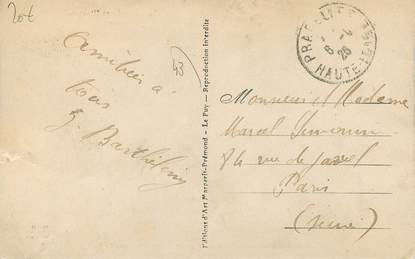 20€
Amitiés à
tous
J. Barthélemy
43
Éditions d'Art Margerit-Brémond - Le Puy - Reproduction Interdite
PRADELLES
26
HAUTE-LOIRE
Monsieur et Madame
Marcel
84 rue de
Paris
(Seine)